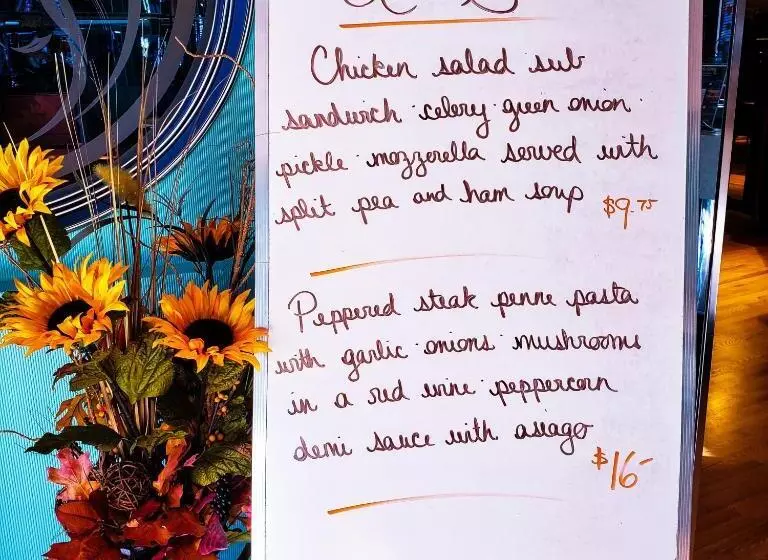 Chicken salad sub
sandwich celery green onion
pickle mozzerella served with
split pea and ham soup $9.75
Peppered steak penne pasta
with garlic onions mushrooms
in a red wine peppercorn
demi sauce with asiago
$16-